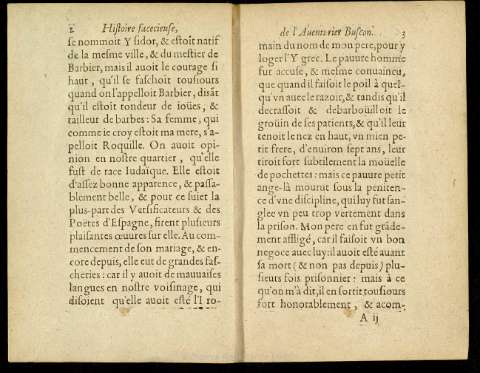 2 Histoire facecieuse,
se nommoit Y sidor, & estoit natif
de la mesme ville, & du mestier de
Barbier, mais il avoit le courage si
haut, qu'il se faschoit tousiours
quand on l'appelloit Barbier, disāt
qu'il estoit tondeur de ioües, &
tailleur de barbes: Sa femme, qui
comme ie croy estoit ma mere, s'a-
pelloit Roquille. On auoit opi-
nion en nostre quartier, qu'elle
fust de race Iudaïque. Elle estoit
d'assez bonne apparence, & passa-
blement belle, & pour ce suiet la
plus-part des Versificateurs & des
Poëtes d'Espagne, firent plusieurs
plaisantes œuures sur elle. Au com-
mencement de son mariage, & en-
core depuis, elle eut de grandes fas-
cheries: car il y auoit de mauuaises
langues en nostre voisinage, qui
disoient qu'elle auoit esté l'I ro-
de l'Auenturier Buscon. 3
main du nom de mon pere, pour y
loger l'Y grec. Le pauure homme
fut accuse, & mesme conuaincu,
que quand il faisoit le poil à quel-
qu'vn auec le razoir, & tandis qu'il
decrassoit & debarboüilloit le
groüin de ses patients, & qu'il leur
tenoit le nez en haut, vn mien pe-
tit frere, d'enuiron sept ans, leur
tiroit fort subtilement la moüelle
de pochettes: mais ce pauure petit
ange-là mourut sous la peniten-
ce d'vne discipline, qui luy fut san-
glee vn peu trop vertement dans
la prison. Mon pere en fut grāde-
ment affligé, car il faisoit vn bon
negoce auec luy: il auoit esté auant
sa mort (& non pas depuis) plu-
sieurs fois prisonnier: mais à ce
qu'on m'a dit, il en sortit tousiours
fort honorablement, & acom-
A ij